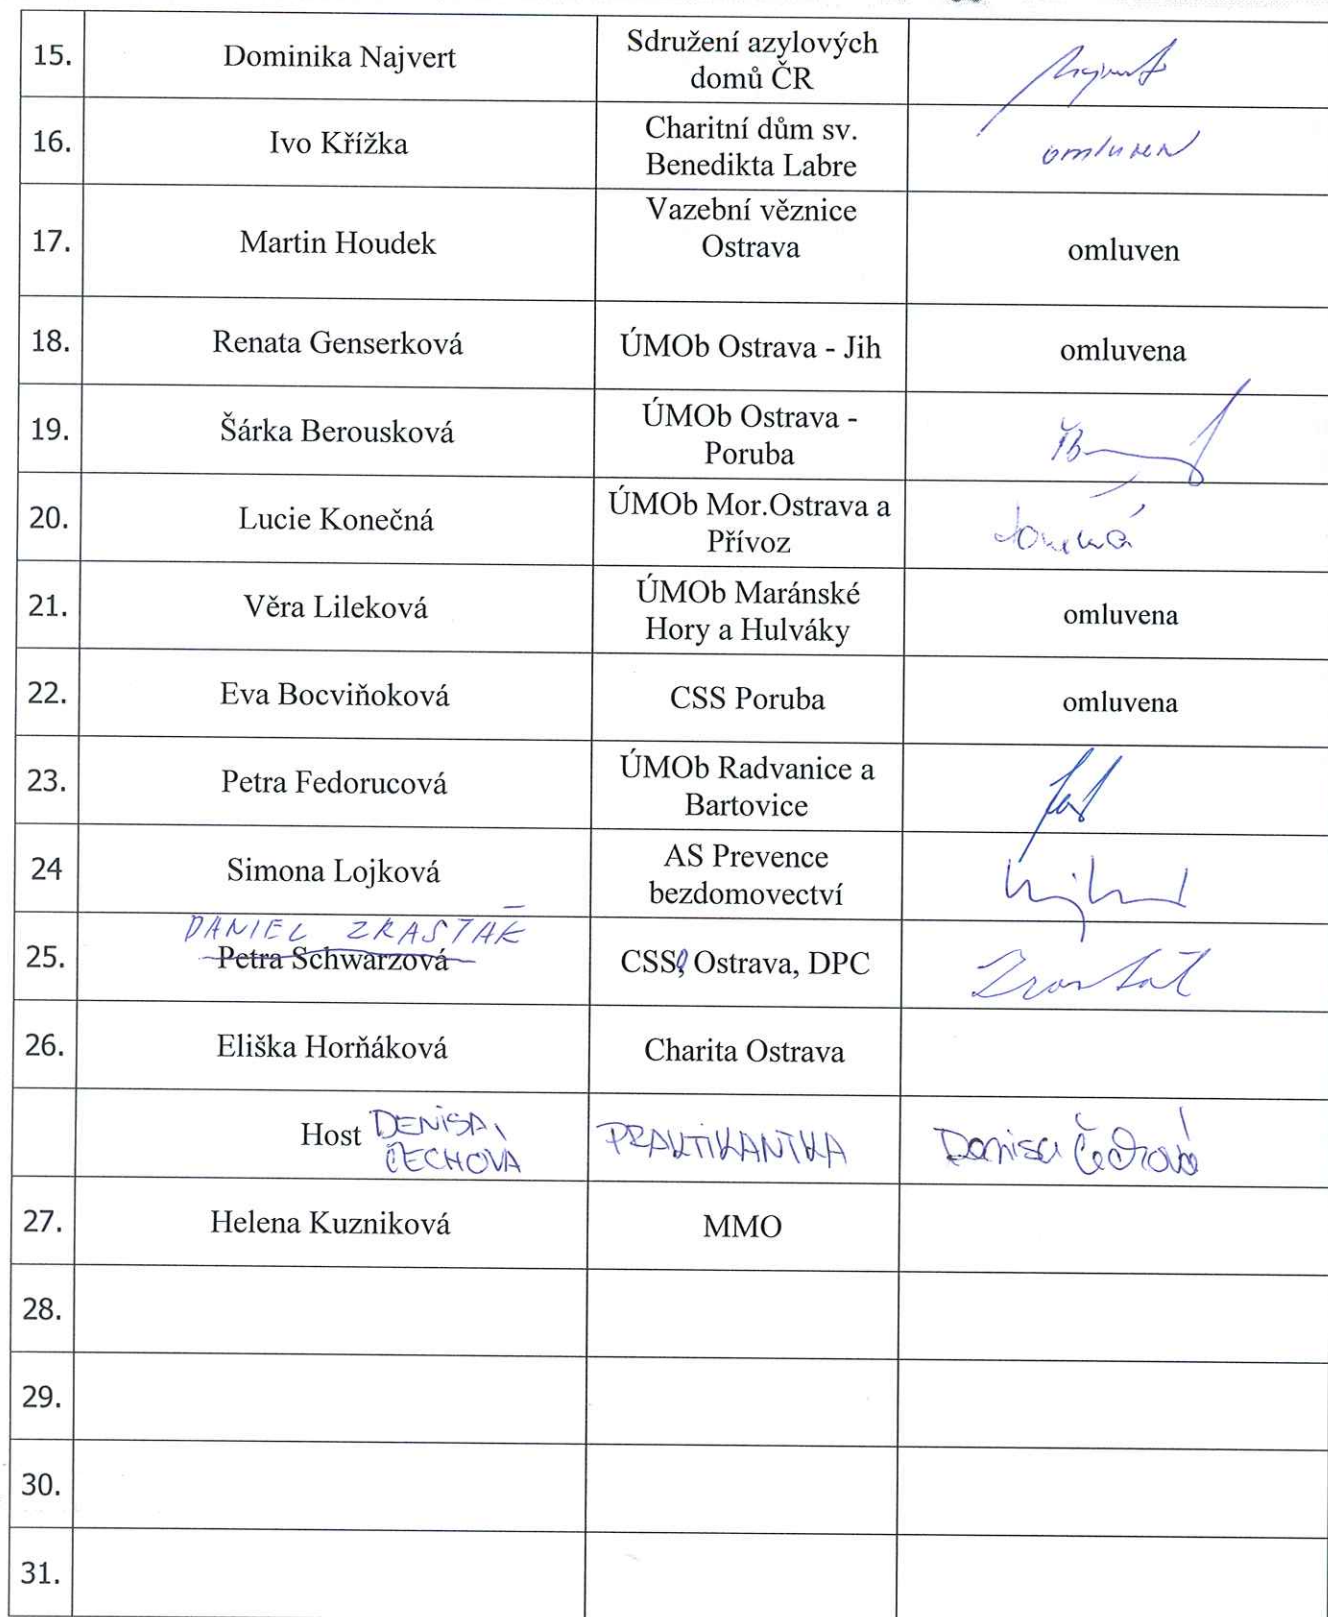 15.
Dominika Najvert
Sdružení azylových
domů ČR
16.
Ivo Křížka
Charitní dům sv.
Benedikta Labre
omluven
17.
Martin Houdek
Vazební věznice
Ostrava
omluven
18.
Renata Genserková
ÚMOb Ostrava - Jih
omluvena
19.
Šárka Berousková
ÚMOb Ostrava -
Poruba
20.
Lucie Konečná
ÚMOb Mor.Ostrava a
Přívoz
21.
Věra Lileková
ÚMOb Maránské
Hory a Hulváky
omluvena
22.
Eva Bocviňoková
CSS Poruba
omluvena
23.
Petra Fedorucová
ÚMOb Radvanice a
Bartovice
24
Simona Lojková
AS Prevence
bezdomovectví
25.
DANIEL ZRASTÁK
Petra Schwarzová
CSS Ostrava, DPC
26.
Eliška Horňáková
Charita Ostrava
Host DENISA
ČECHOVA
PRAKTIKANTKA
Denisa Čechová
27.
Helena Kuzniková
MMO
28.
29.
30.
31.